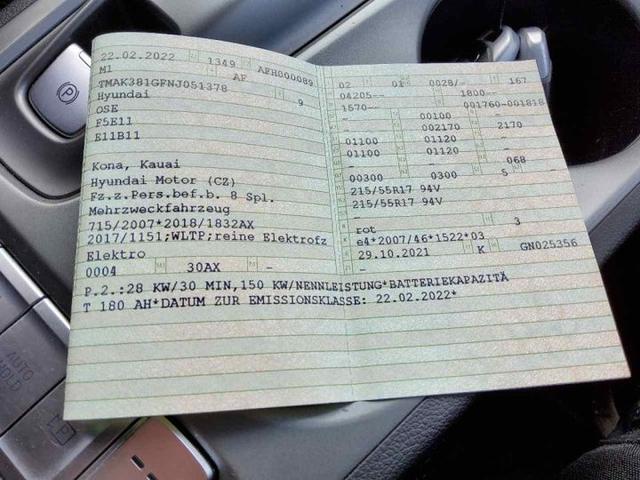 22.02.2022 1349 AFH000089
M1 AF
TMAK381GFNJ051378
Hyundai 9
OSE
F5E11
E11B11
Kona, Kauai
Hyundai Motor (CZ)
Fz.z.Pers.bef.b. 8 Spl.
Mehrzweckfahrzeug
715/2007*2018/1832AX
2017/1151;WLTP;reine Elektrofz
Elektro
0004 30AX -
02 01 0028/- 167
04205-- 1800--
1570-- 001760-001818
- 00100 -
- 002170 2170
01100 01120 -
01100 01120 -
- - 068
00300 0300 5 -
215/55R17 94V
215/55R17 94V
-
rot 3
e4*2007/46*1522*03
29.10.2021 K GN025356
-
P.2.:28 KW/30 MIN,150 KW/NENNLEISTUNG*BATTERIEKAPAZITÄ
T 180 AH*DATUM ZUR EMISSIONSKLASSE: 22.02.2022*
AUTO
HOLD
P